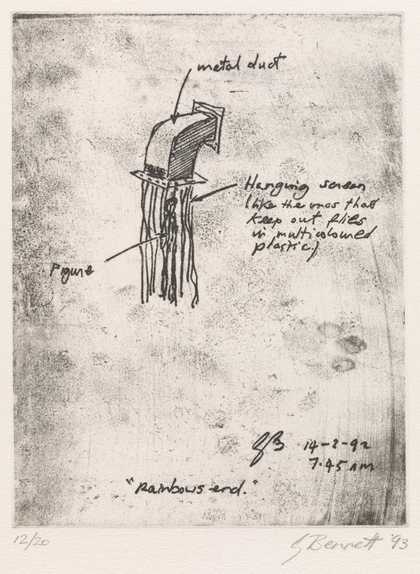 metal duct
Hanging screen
(like the ones that
keep out flies
in multicoloured
plastic.)
Figure
GB 14-2-92
7.45 AM
"Rainbows end."
12/20
G Bennett '93